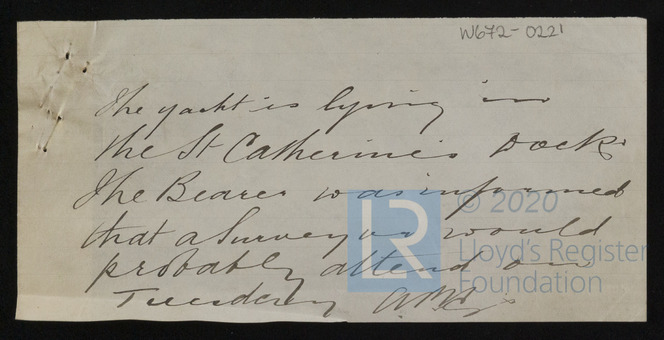 W672-0221
The yacht is lying in
the St Catherine's Dock
The Bearer was informed
that a Surveyor would
probably attend on
Tuesday
LR
© 2020
Lloyd's Register
Foundation